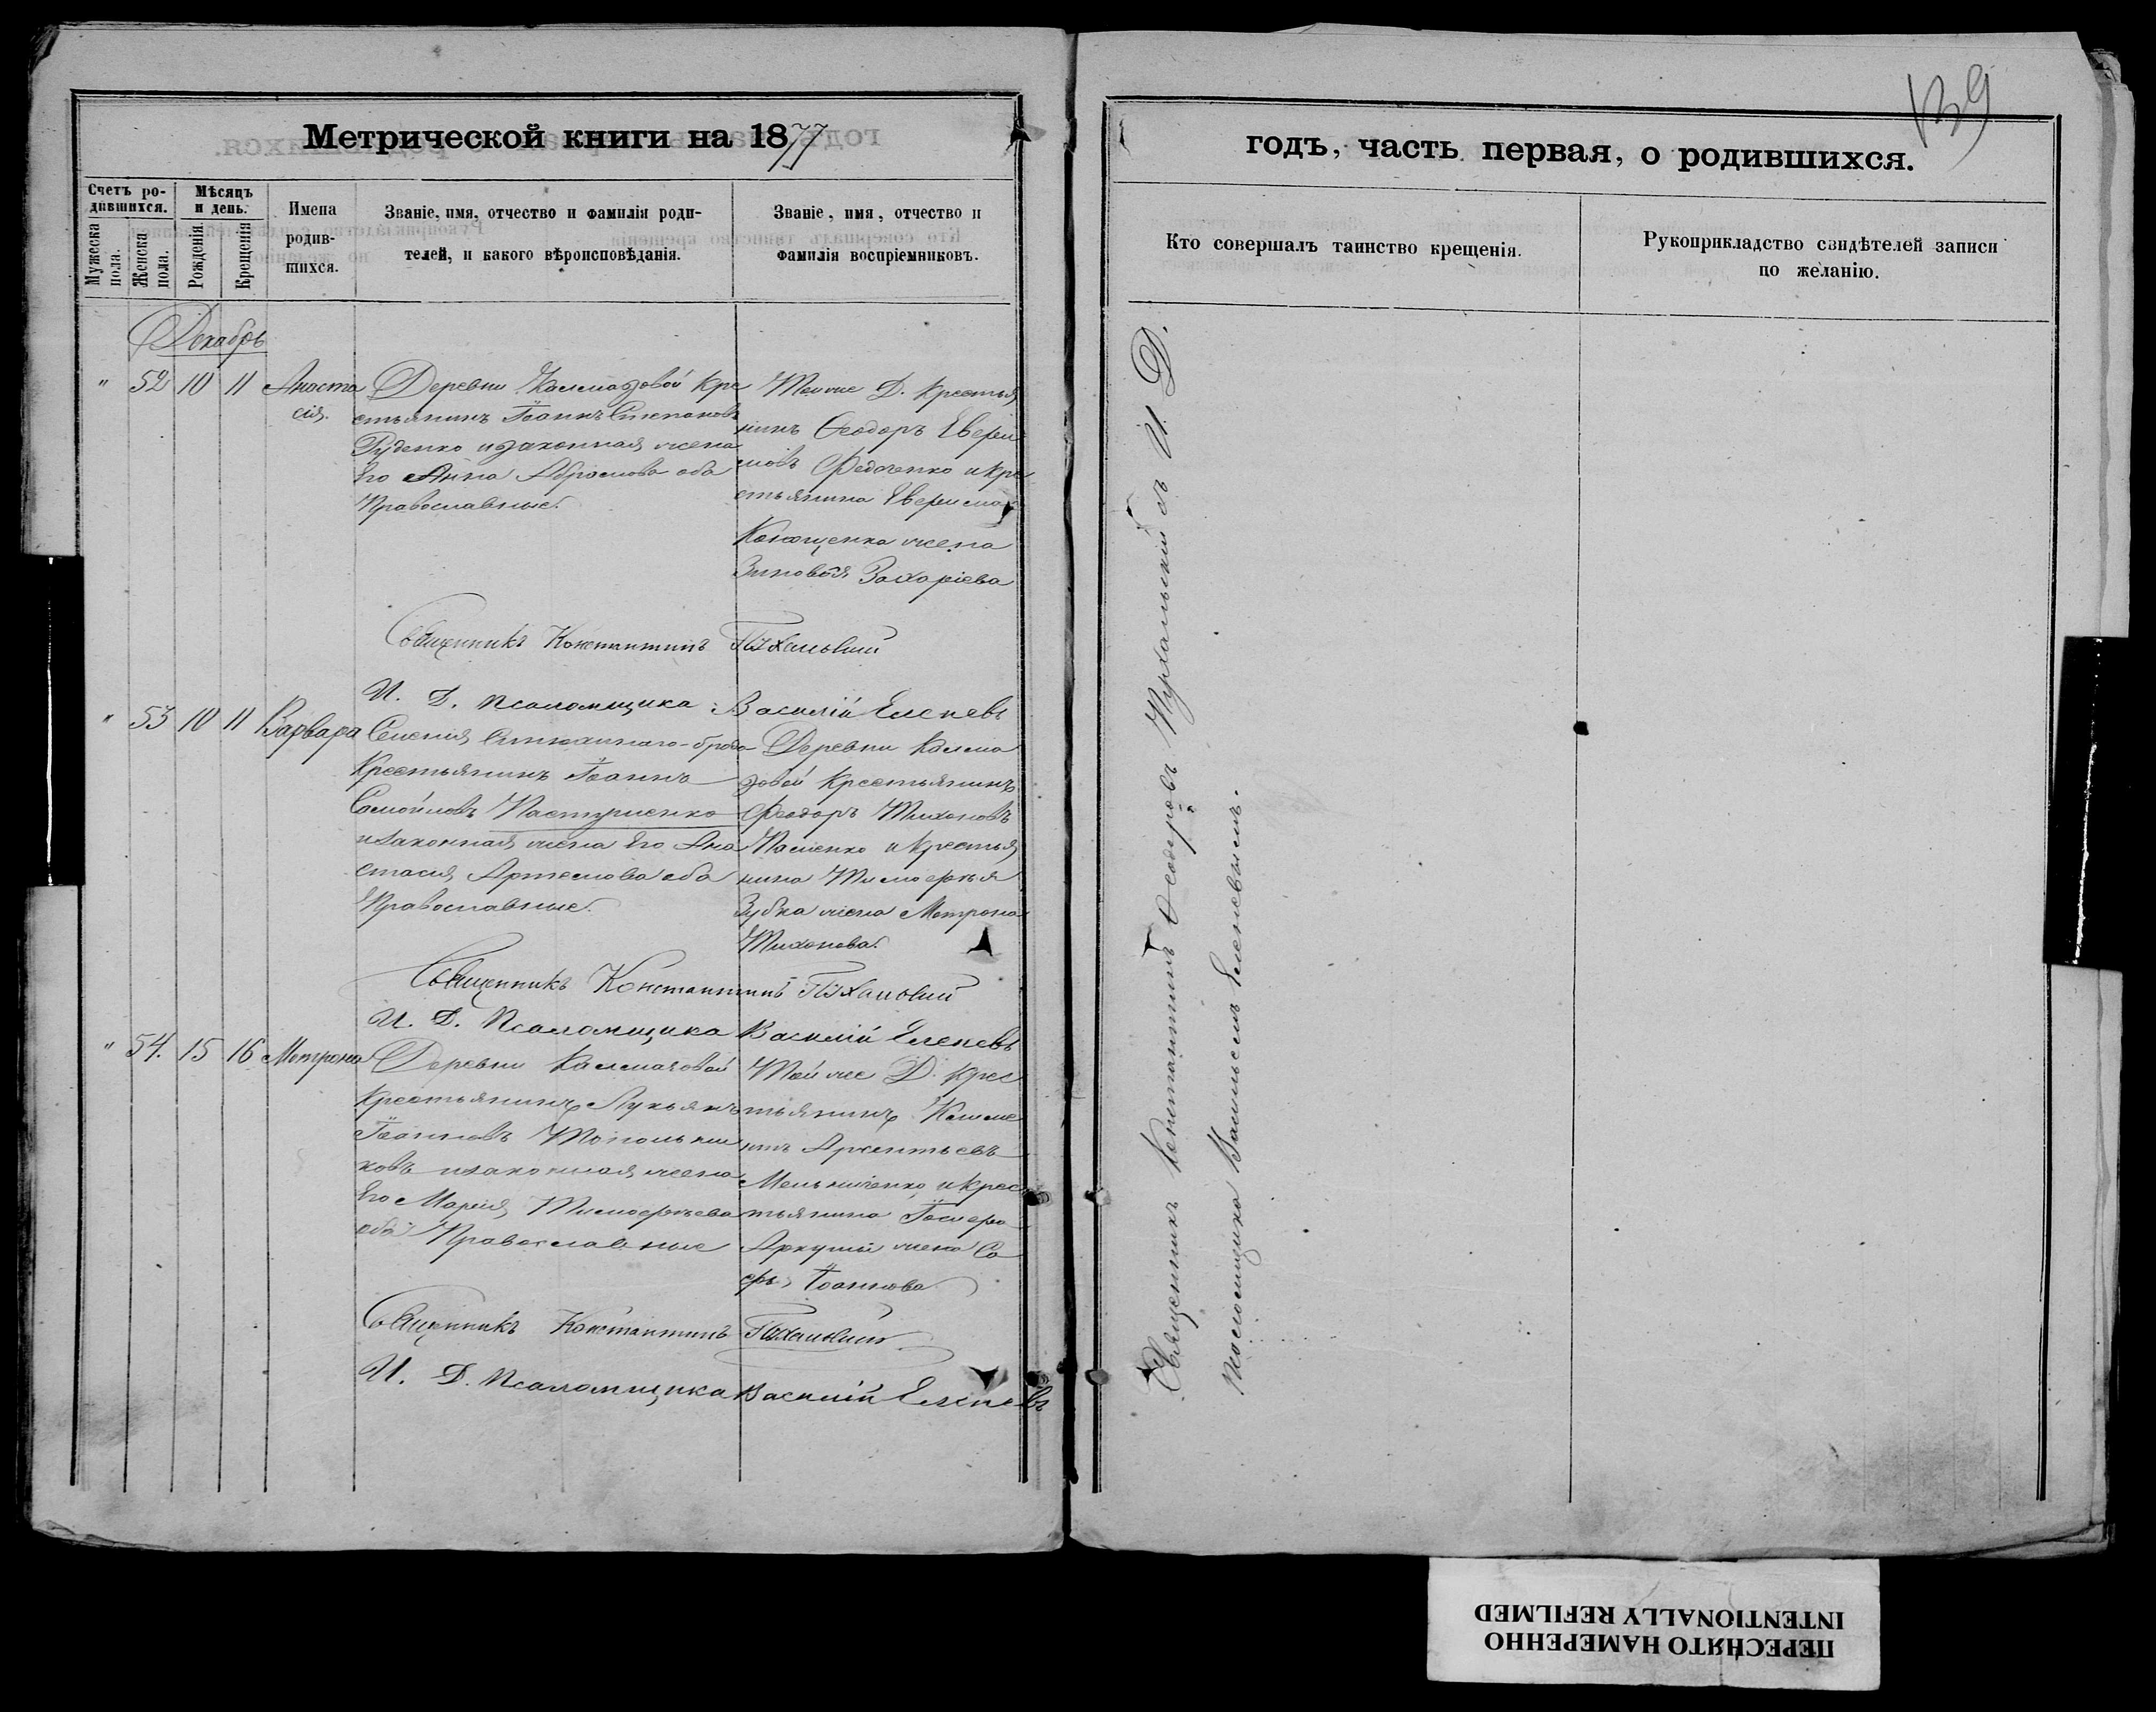 Метрической книги на 1877
Счетъ ро-
дившихся.
Мѣсяцъ
и день.
Мужеска
пола.
Женска
пола.
Рожденія
Крещенія
Имена
родив-
шихся.
Званіе, имя, отчество и фамилія роди-
телей, и какого вѣроисповѣданія.
Званіе, имя, отчество и
фамилія воспріемниковъ.
Декабрь
" 52 10 11 Анаста
сія.
Деревни Калмазовой Кре
стьянинъ Іоаннъ Степановъ
Руденко и законная жена
Его Анна Абрамова оба
Православные.
Той же Д. Крестья
нинъ Ѳеодоръ
Федченко и кре
стьянина
жена
Зиновія Захаріева
Священникъ Константинъ Пухальскій
И. Д. Псаломщика Василій Еленевъ
" 53 10 11 Варвара
Селенія Синюхинаго-брода
Крестьянинъ Іоаннъ
Самойловъ Пастушенко
и законная жена Его Ана
стасія Артемова оба
Православные.
Деревни Калма
зовой Крестьянинъ
Феодоръ Тихоновъ
и Крестья
нина Тимофея
Зубка жена Матрона
Тихонова.
Священникъ Константинъ Пухальскій
И. Д. Псаломщика Василій Еленевъ
" 54. 15 16 Матрона
Деревни Калмазовой
Крестьянинъ Лукьянъ
Іоанновъ
ковъ и законная жена
Его Марія Тимофеева
оба Православные
Той же Д. Крес
тьянинъ Климе
нтъ
Мельниченко и Крес
тьянина
жена Со
фія Іоаннова
Священникъ Константинъ Пухальскій
И. Д. Псаломщика Василій Еленевъ
139
годъ, часть первая, о родившихся.
Кто совершалъ таинство крещенія.
Рукоприкладство свидѣтелей записи
по желанію.
Священникъ Константинъ Ѳеодоровъ Пухальскій съ И. Д.
Псаломщика Васильемъ Еленевымъ.
ПЕРЕСНЯТО НАМЕРЕННО
INTENTIONALLY REFILMED